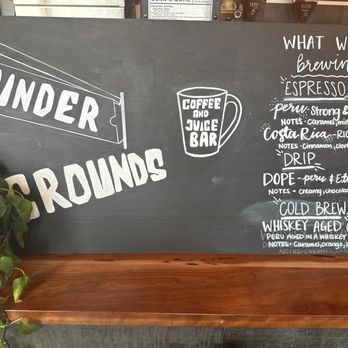 INDER
GROUNDS
COFFEE
AND
JUICE
BAR
WHAT W
Brewin
ESPRESSO
peru Strong &
NOTES - Caramel,
Costa Rica - RIC
NOTES - Cinnamon, clov
DRIP
DOPE - peru & Et
NOTES - Creamy, chocola
COLD BREW
WHISKEY AGED C
PERU AGED IN A WHISKEY
NOTES - Caramel, orange,